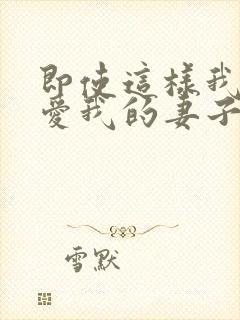 即使這樣我
愛我的妻子
雪默